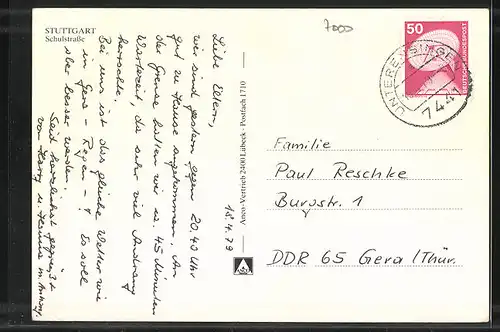 STUTTGART
Schulstraße
7000
18.4.79
Liebe Eltern,
wir sind gestern gegen 20.40 Uhr
gut zu Hause angekommen. An
der Grenze hatten wir ca. 45 Minuten
Wartezeit, da sehr viel Andrang
herrschte.
Bei uns ist das gleiche Wetter wie
in Gera - Regen - ! Es soll
aber besser werden.
Seid herzlichst gegrüßt
von Harry u. Hanna
Amco-Vertrieb 2400 Lübeck · Postfach 1710
50
DEUTSCHE BUNDESPOST
UNTERENSINGEN
7441
Familie
Paul Reschke
Burgstr. 1
DDR 65 Gera/Thür.